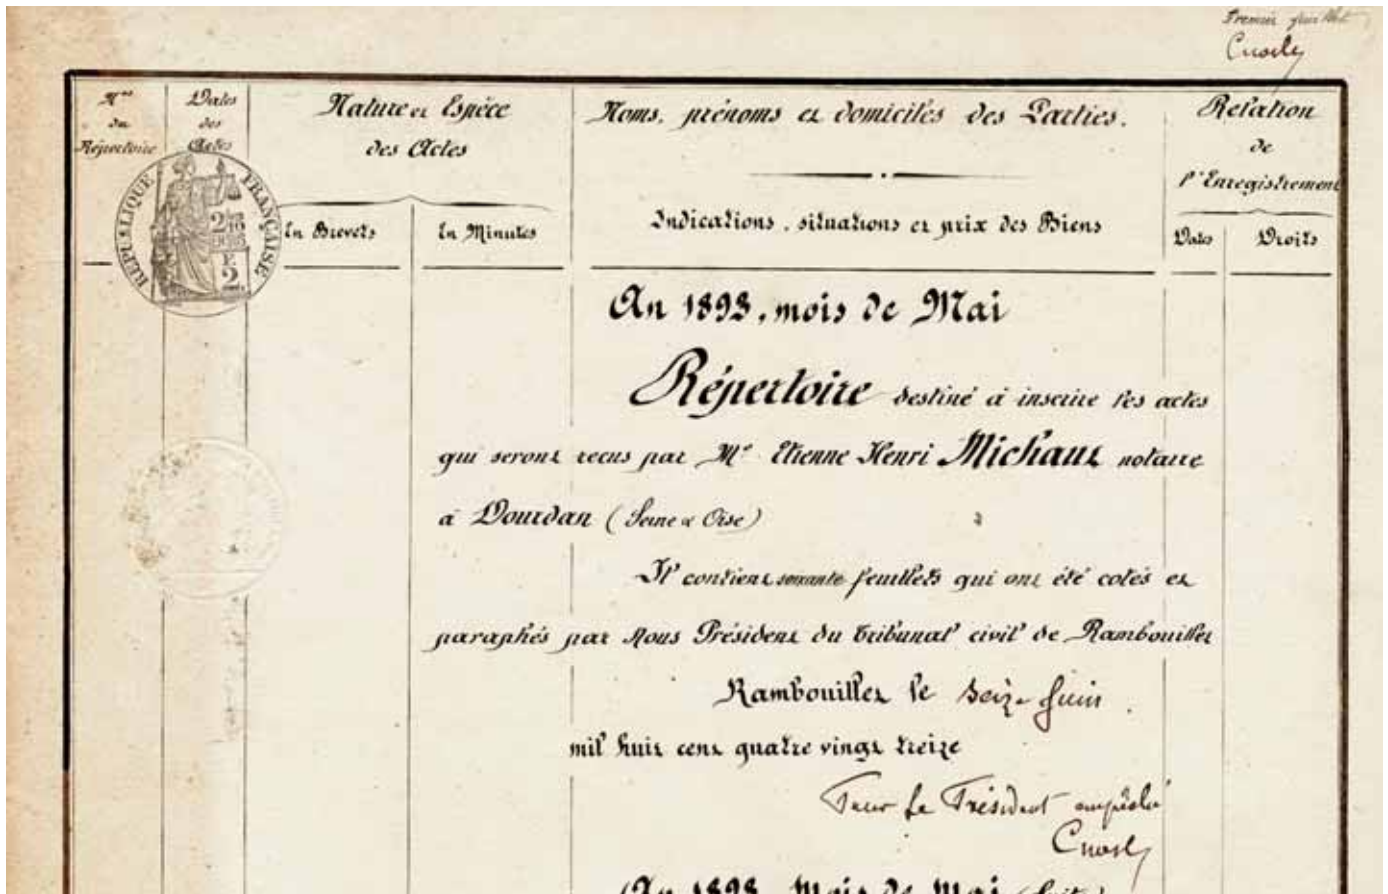 Premier juillet
Nos
du
Répertoire
Dates
des
Actes
Nature et Espèce
des Actes
En Brevets
En Minutes
Noms, prénoms et domiciles des Parties.
Indications, situations et prix des Biens
Relation
de
l'Enregistrement
Dates
Droits
RÉPUBLIQUE FRANÇAISE
An 1893, mois de Mai
Répertoire destiné à inscrire les actes
qui seront reçus par Me Etienne Henri Michaut notaire
à Dourdan (Seine & Oise)
Il contient soixante feuillets qui ont été cotés et
paraphés par Nous Président du Tribunal civil de Rambouillet
Rambouillet le seize juin
mil huit cent quatre vingt treize
Pour le Président empêché
An 1893, Mois de Mai (Suite)